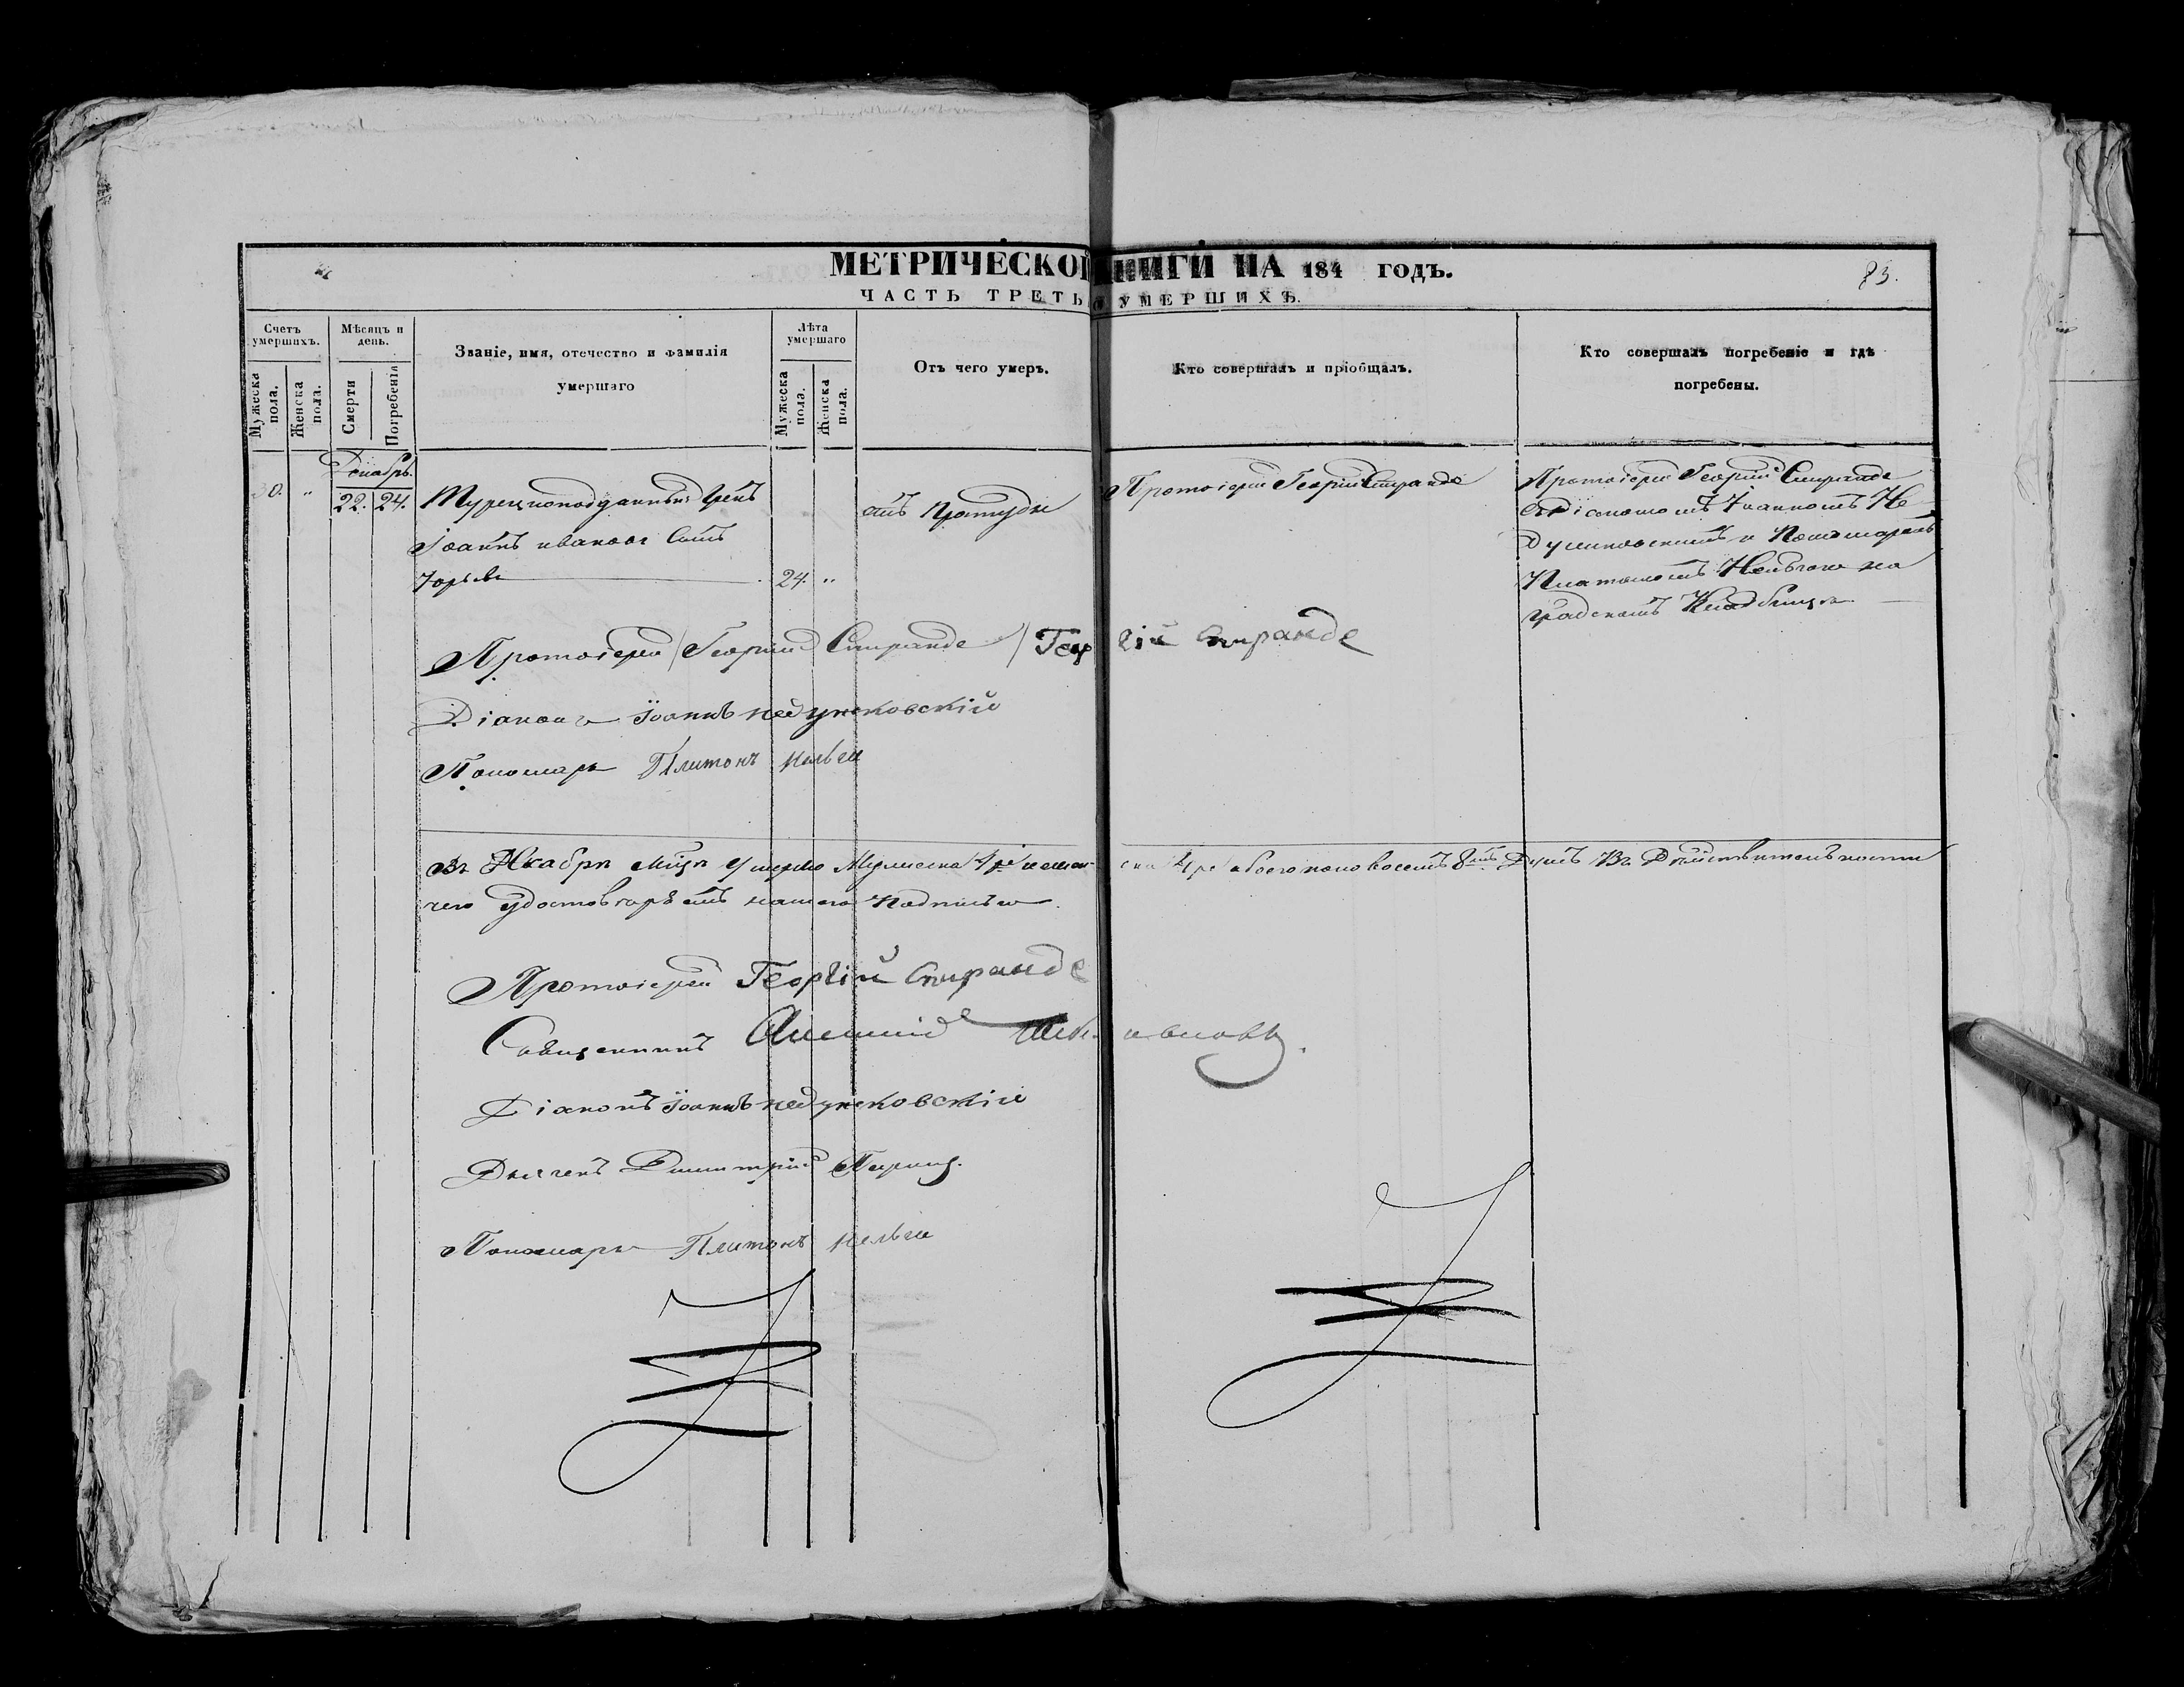 МЕТРИЧЕСКОЙ КНИГИ НА 184 ГОДЪ.
83.
ЧАСТЬ ТРЕТЬЯ О УМЕРШИХЪ.
Счетъ умершихъ.
Мужеска пола.
Женска пола.
Мѣсяцъ и день.
Смерти
Погребенія
Званіе, имя, отечество и фамилія
умершаго
Лѣта умершаго
Мужеска пола.
Женска пола.
Отъ чего умеръ.
Кто совершалъ и пріобщалъ.
Кто совершалъ погребеніе и гдѣ
погребены.
Декабрь.
30. " 22. 24.
Турецкоподданный Грекъ
Іоаннъ Ивановъ Сынъ
24. "
отъ Простуды
Протоіерей Георгій Спиранде
Протоіерей Георгій Спиранде
съ Діакономъ Іоанномъ Не
дунковскимъ и Пономаремъ
Платономъ на
градскомъ Кладбище
Протоіерей / Георгій Спиранде / Георгій Спиранде
Діаконъ Іоаннъ недунковскій
Пономарь Платонъ
Въ Декабрѣ мцѣ умерло Мужеска 4ре женска 4ре обоего пола восемъ 8мъ Душъ Въ Действительности
чего удостоверяемъ нашею Подписью.
Протоіерей Георгій Спиранде
Священникъ
Діаконъ Іоаннъ недунковскій
Дьячекъ Димитрій
Пономарь Платонъ